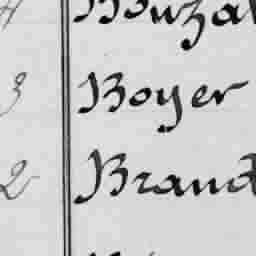 4 Bouzat
3 Boyer
2 Brand